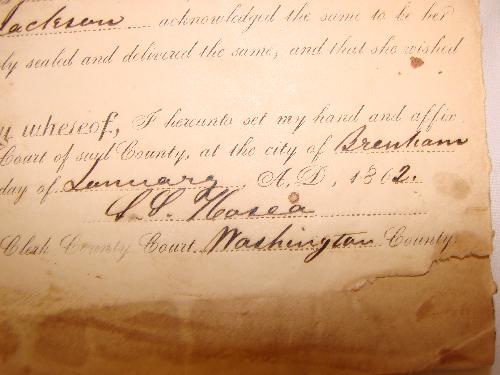 Jackson acknowledged the same to be her
ly sealed and delivered the same, and that she wished
y whereof, I hereunto set my hand and affix
Court of said County, at the city of Brenham
day of January A. D., 1862.
S. S. Hosea
Clerk County Court Washington County.